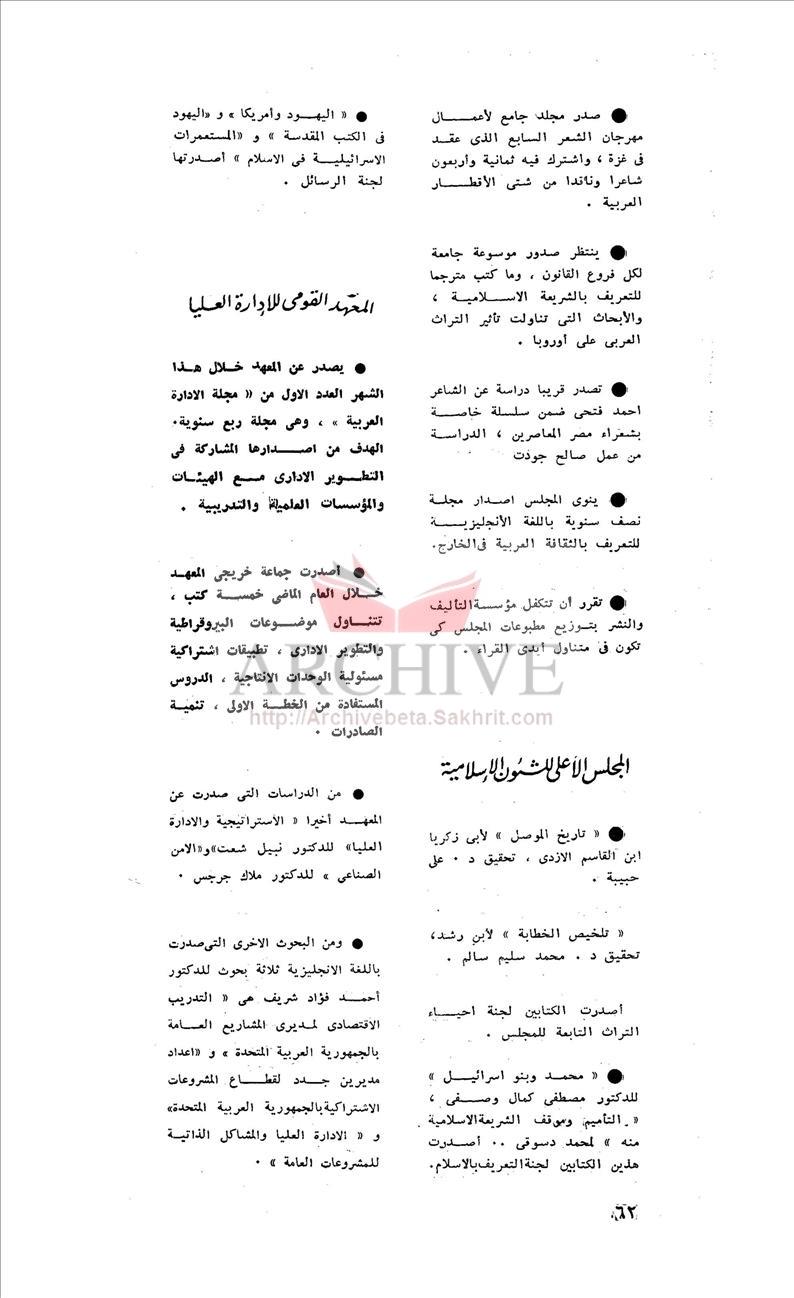 ● صدر مجلد جامع لأعمـــــال
مهرجان الشعر السابع الذى عقـد
فى غزة ، واشترك فيه ثمانية وأربعون
شاعرا وناقدا من شتى الأقطـــار
العربية .
● ينتظر صدور موسوعة جامعة
لكل فروع القانون ، وما كتب مترجما
للتعريف بالشريعة الاســلاميـة ،
والأبحاث التى تناولت تأثير التراث
العربى على أوروبا .
● تصدر قريبا دراسة عن الشاعر
احمد فتحى ضمن سلسلة خاصــة
بشعراء مصر المعاصرين ، الدراسـة
من عمل صالح جودت
● ينوى المجلس اصدار مجلـة
نصف سنوية باللغة الأنجليزيــــة
للتعريف بالثقافة العربية فى الخارج.
● تقرر أن تتكفل مؤسسة التأليف
والنشر بتـوزيع مطبوعات المجلس كى
تكون فى متناول أيدى القراء .
المجلس الأعلى للشئون الإسلامية
● « تاريخ الموصل » لأبى زكريا
ابن القاسم الازدى ، تحقيق د . على
حبيبة .
« تلخيص الخطابة » لأبن رشد،
تحقيق د . محمد سليم سالم .
أصدرت الكتابين لجنة احيـــاء
التراث التابعة للمجلس .
● « محمـد وبنو اسرائيــل »
للدكتور مصطفى كمال وصــفى ،
« التأميم وموقف الشريعة الاسلامية
منه » لمحمد دسوقى .. أصـدرت
هذين الكتابين لجنة التعريف بالاسلام.
● « اليهــود وأمريكا » و «اليهود
فى الكتب المقدسة » و «المستعمرات
الاسرائيليــة فى الاسلام » أصـدرتها
لجنة الرسائل .
المعهد القومى للإدارة العليا
● يصدر عن المعهد خـلال هـذا
الشهر العدد الاول من « مجلة الادارة
العربية » ، وهى مجلة ربع سنوية.
الهدف من اصـــدارها المشاركة فى
التطـــوير الادارى مــع الهيئـات
والمؤسسات العلمية والتدريبية .
● أصدرت جماعة خريجى المعهـد
خــلال العام الماضى خمســـة كتب ،
تتنــاول موضــوعات البيروقراطية
والتطوير الادارى ، تطبيقات اشتراكية
مسئولية الوحدات الانتاجية ، الدروس
المستفادة من الخطــة الاولى ، تنميـة
الصادرات .
● من الدراسات التى صدرت عن
المعهــد أخيرا « الأستراتيجية والادارة
العليا» للدكتور نبيل شعث»و«الامن
الصناعى » للدكتور ملاك جرجس .
● ومن البحوث الاخرى التى صدرت
باللغة الانجليزية ثلاثة بحوث للدكتور
أحمـــد فؤاد شريف هى « التدريب
الاقتصادى لمـديرى المشاريع العــامة
بالجمهورية العربية المتحدة » و «اعداد
مديرين جــدد لقطــاع المشروعات
الاشتراكية بالجمهورية العربية المتحدة»
و « الادارة العليا والمشاكل الذاتيـة
للمشروعات العامة » .
٦٢
ARCHIVE
http://Archivebeta.Sakhrit.com